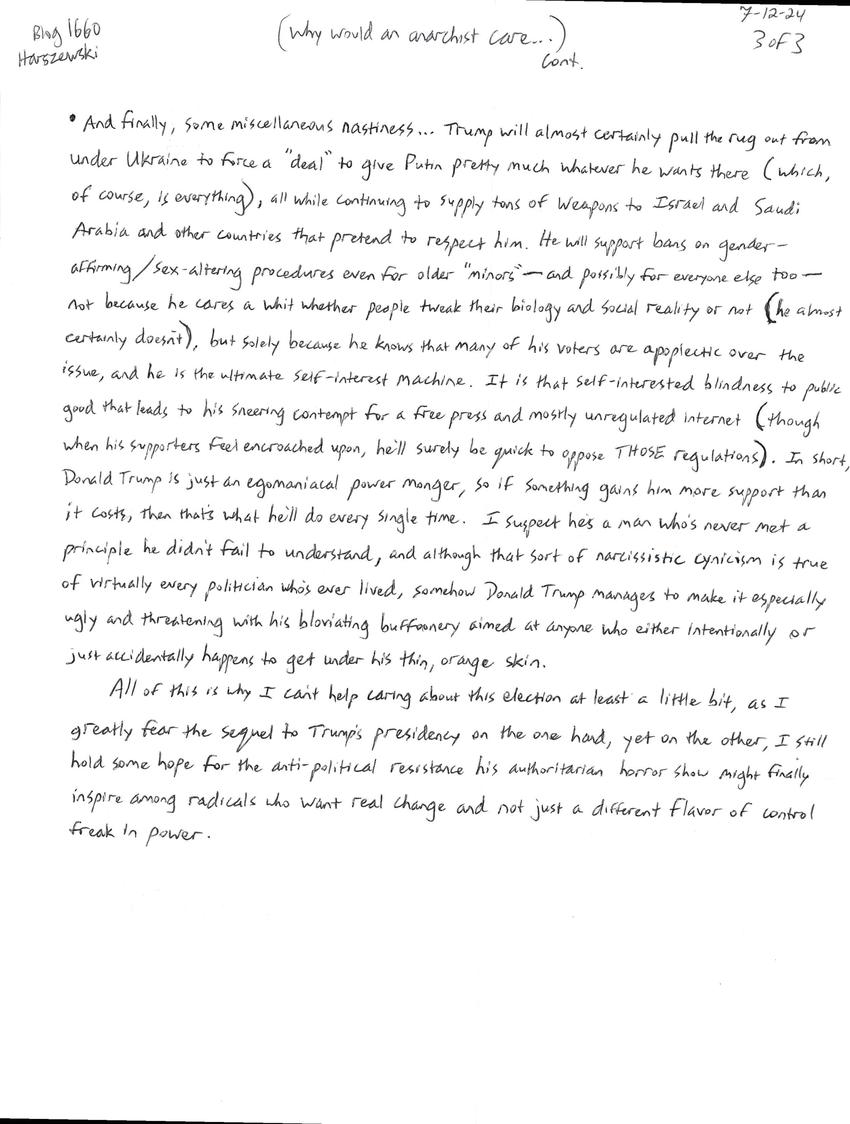 Blog 1660
Harszewski
(Why would an anarchist care...)
Cont.
7-12-24
3 of 3
• And finally, some miscellaneous nastiness... Trump will almost certainly pull the rug out from
under Ukraine to force a "deal" to give Putin pretty much whatever he wants there (which,
of course, is everything), all while continuing to supply tons of weapons to Israel and Saudi
Arabia and other countries that pretend to respect him. He will support bans on gender-
affirming/sex-altering procedures even for older "minors" — and possibly for everyone else too —
not because he cares a whit whether people tweak their biology and social reality or not (he almost
certainly doesn't), but solely because he knows that many of his voters are apoplectic over the
issue, and he is the ultimate self-interest machine. It is that self-interested blindness to public
good that leads to his sneering contempt for a free press and mostly unregulated internet (though
when his supporters feel encroached upon, he'll surely be quick to oppose THOSE regulations). In short,
Donald Trump is just an egomaniacal power monger, so if something gains him more support than
it costs, then that's what he'll do every single time. I suspect he's a man who's never met a
principle he didn't fail to understand, and although that sort of narcissistic cynicism is true
of virtually every politician who's ever lived, somehow Donald Trump manages to make it especially
ugly and threatening with his bloviating buffoonery aimed at anyone who either intentionally or
just accidentally happens to get under his thin, orange skin.
All of this is why I can't help caring about this election at least a little bit, as I
greatly fear the sequel to Trump's presidency on the one hand, yet on the other, I still
hold some hope for the anti-political resistance his authoritarian horror show might finally
inspire among radicals who want real change and not just a different flavor of control
freak in power.